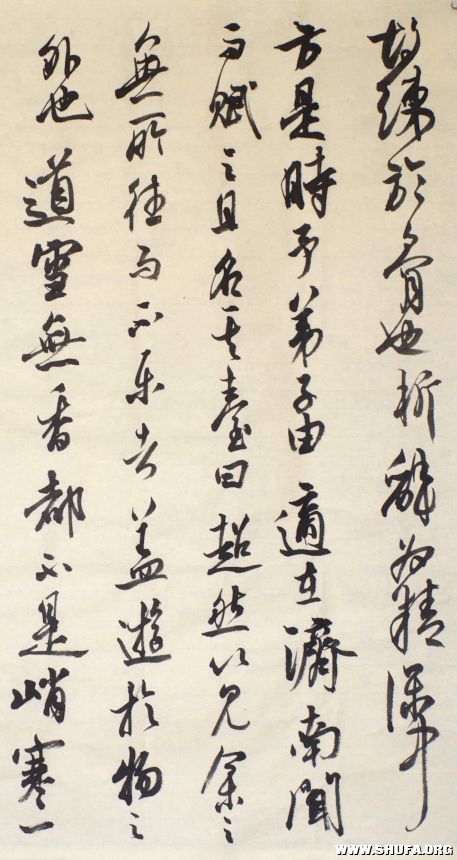 故練於骨者析辭必精深乎
方是時予弟子由適在濟南聞
而賦之且名其臺曰超然以見余之
無所往而不樂者蓋遊於物之
外也道雪無香都不是峭寒一
WWW.SHUFA.ORG